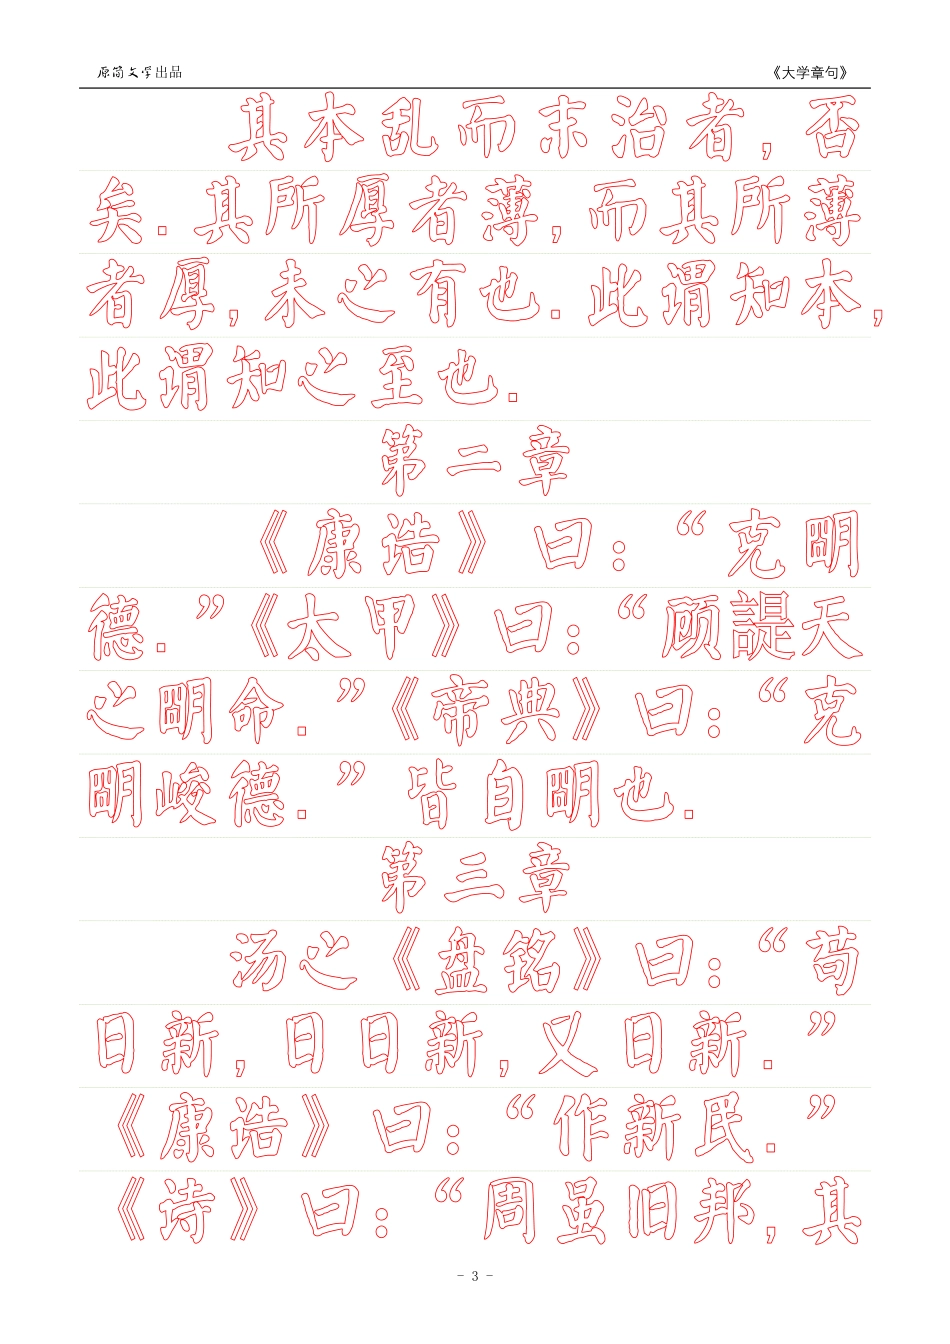 原筒文学出品 《大学章句》
其本乱而末治者,否
矣.其所厚者薄,而其所薄
者厚,未之有也.此谓知本,
此谓知之至也.
第二章
《康诰》曰:“克明
德.”《太甲》曰:“顾諟天
之明命.”《帝典》曰:“克
明峻德.” 皆自明也.
第三章
汤之《盘铭》曰:“苟
日新,日日新,又日新.”
《康诰》曰:“作新民.”
《诗》曰:“周虽旧邦,其
- 3 -